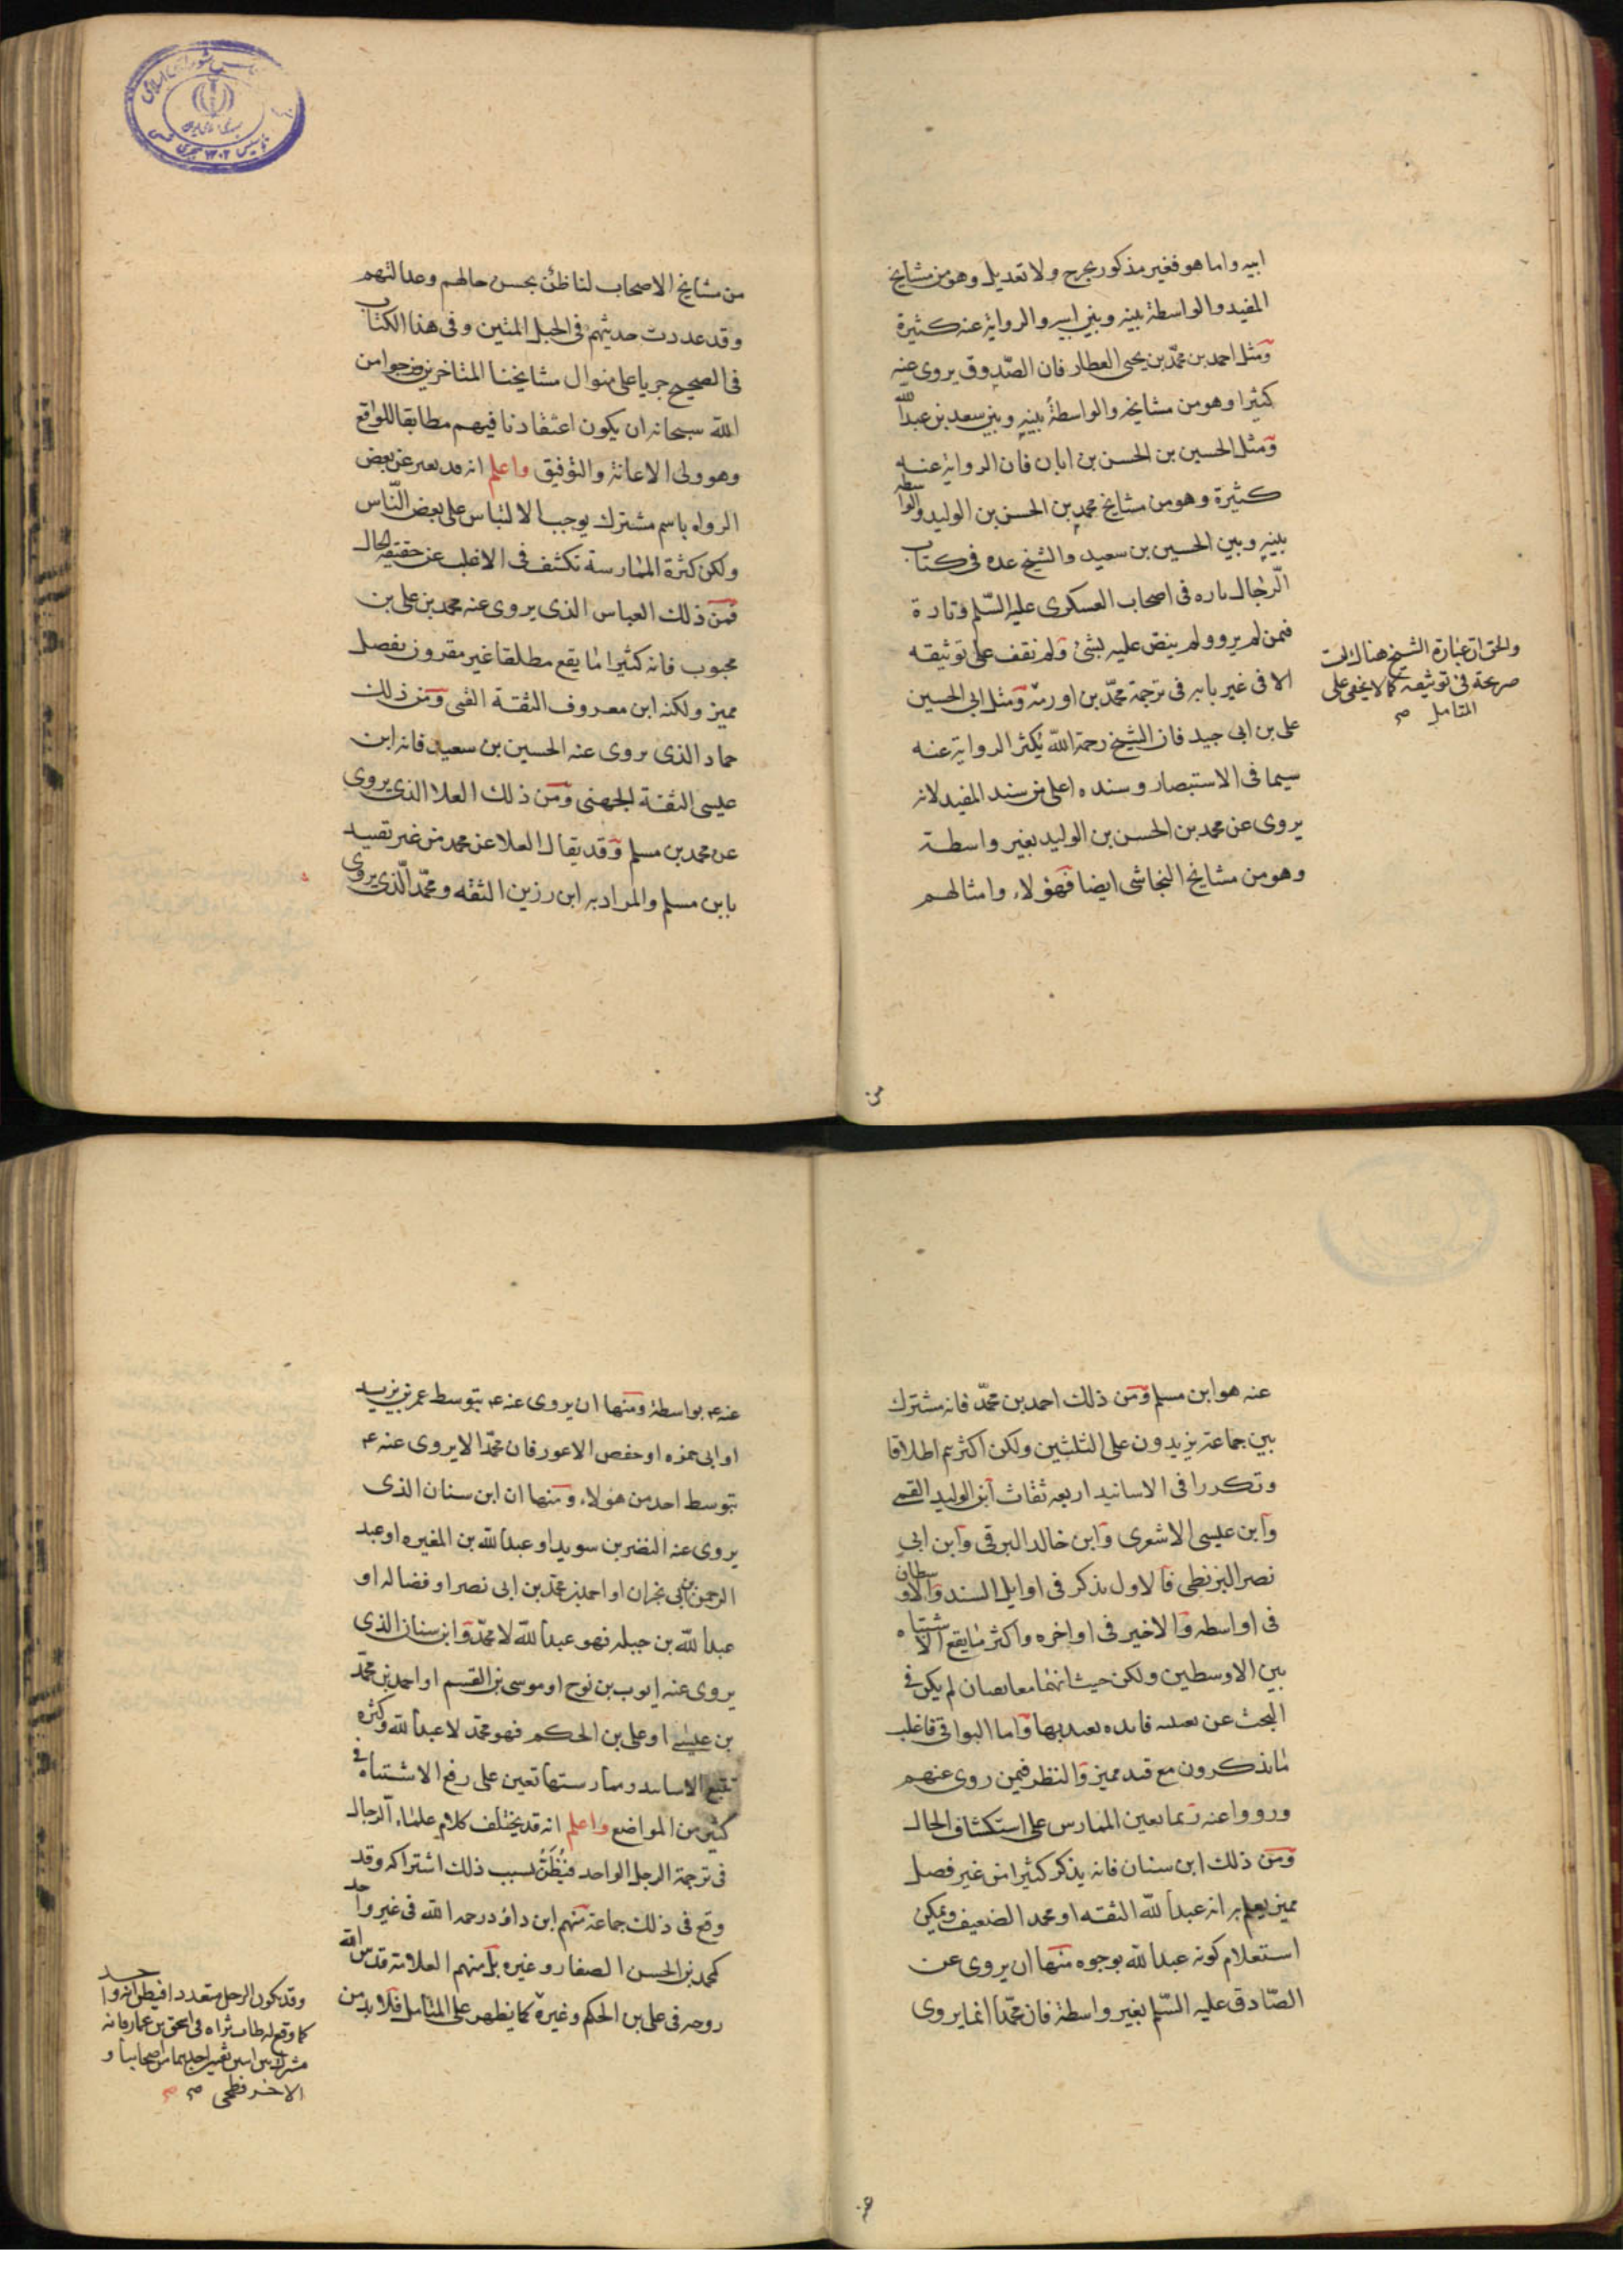 ابيه واما هو فغير مذكور بجرح ولا تعديل وهو من مشايخ
المفيد والواسطة بينه وبين ابيه والرواية عنه كثيرة
ومثل احمد بن محمّد بن يحيى العطار فان الصّدوق يروى عنه
كثيرا وهو من مشايخه والواسطة بينه وبين سعد بن عبد اللّه
ومثل الحسين بن الحسن بن ابان فان الرواية عنه
كثيرة وهو من مشايخ محمد بن الحسن بن الوليد والواسطه
بينه وبين الحسين بن سعيد والشيخ عده فى كتاب
الرّجال تاره فى اصحاب العسكرى عليه السّلم وتارة
فيمن لم يرو ولم ينص عليه بشئ ولم نقف على توثيقه
الا فى غير بابه فى ترجمة محمّد بن اورمة ومثل ابى الحسين
على بن ابى جيد فان الشيخ رحمة اللّه يُكثر الرواية عنه
سيما فى الاستبصار وسنده اعلى من سند المفيد لانه
يروى عن محمد بن الحسن بن الوليد بغير واسطة
وهو من مشايخ النجاشى ايضا فهؤلاء وامثالهم
والحق ان عبارة الشيخ هناك ليست
صريحة فى توثيقه كما لا يخفى على
المتامل
من
من مشايخ الاصحاب لنا ظن بحسن حالهم وعدالتهم
وقد عددت حديثهم فى الحبل المتين وفى هذا الكتاب
فى الصحيح جريا على منوال مشايخنا المتاخرين ونرجوا من
اللّه سبحانه ان يكون اعتقادنا فيهم مطابقا للواقع
وهو ولى الاعانة والتوفيق واعلم انه قد يعبر عن بعض
الرواه باسم مشترك يوجب الالتباس على بعض النّاس
ولكن كثرة الممارسة تكشف فى الاغلب عن حقيقة الحال
فمن ذلك العباس الذى يروى عنه محمد بن على بن
محبوب فانه كثيرا ما يقع مطلقا غير مقرون بفصل
مميز ولكنه ابن معروف الثقة القمى ومن ذلك
حماد الذى يروى عنه الحسين بن سعيد فانه ابن
عيسى الثقة الجهنى ومن ذلك العلا الذى يروى
عن محمد بن مسلم وقد يقال العلا عن محمد من غير تقييد
بابن مسلم والمراد به ابن رزين الثقه ومحمّد الّذى يروى
عنه هو ابن مسلم ومن ذلك احمد بن محمّد فانه مشترك
بين جماعة يزيدون على الثلثين ولكن اكثرهم اطلاقا
وتكررا فى الاسانيد اربعه ثقات ابن الوليد القمى
وابن عيسى الاشعرى وابن خالد البرقى وابن ابى
نصر البزنطى فالاول يذكر فى اوايل السند والاوسطان
فى اواسطه والاخير فى اواخره واكثر ما يقع الاشتباه
بين الاوسطين ولكن حيث انهما معا ثقتان لم يكن فى
البحث عن تعيينه فايده يعتد بها واما البواقى فاغلب
ما يذكرون مع قيد مميز والنظر فيمن روى عنهم
ورووا عنه ربما يعين الممارس على استكشاف الحال
ومن ذلك ابن سنان فانه يذكر كثيرا من غير فصل
مميز يعلم به انه عبد اللّه الثقه او محمد الضعيف ويمكن
استعلام كونه عبد اللّه بوجوه منها ان يروى عن
الصّادق عليه السّلم بغير واسطة فان محمّدا انما يروى
عنه ع بواسطة ومنها ان يروى عنه ع بتوسط عمر بن يزيد
او ابى حمزه او حفص الاعور فان محمّدا لا يروى عنه ع
بتوسط احد من هؤلاء ومنها ان ابن سنان الذى
يروى عنه النضر بن سويد او عبد اللّه بن المغيره او عبد
الرحمن بن ابى نجران او احمد بن محمّد بن ابى نصر او فضاله او
عبد اللّه بن جبله فهو عبد اللّه لا محمّد وابن سنان الذى
يروى عنه ايوب بن نوح او موسى بن القسم او احمد بن محمّد
بن عيسى او على بن الحكم فهو محمّد لا عبد اللّه وكثره
تتبع الاسانيد وممارستها تعين على رفع الاشتباه فى
كثير من المواضع واعلم انه قد يختلف كلام علماء الرجال
فى ترجمة الرجل الواحد فيُظَنّ بسبب ذلك اشتراكه وقد
وقع فى ذلك جماعة منهم ابن داؤد رحمه اللّه فى غير واحد
كمحمد بن الحسن الصفار وغيره بل منهم العلامة قدس اللّه
روحه فى على بن الحكم وغيره كما يظهر على المتامل فلا بد من
وقد يكون الرجل متعددا فيظن انه واحد
كما وقع له طاب ثراه فى اسحق بن عمار فانه
مشترك بين اثنين ثقتين احدهما من اصحابنا و
الاخر فطحى